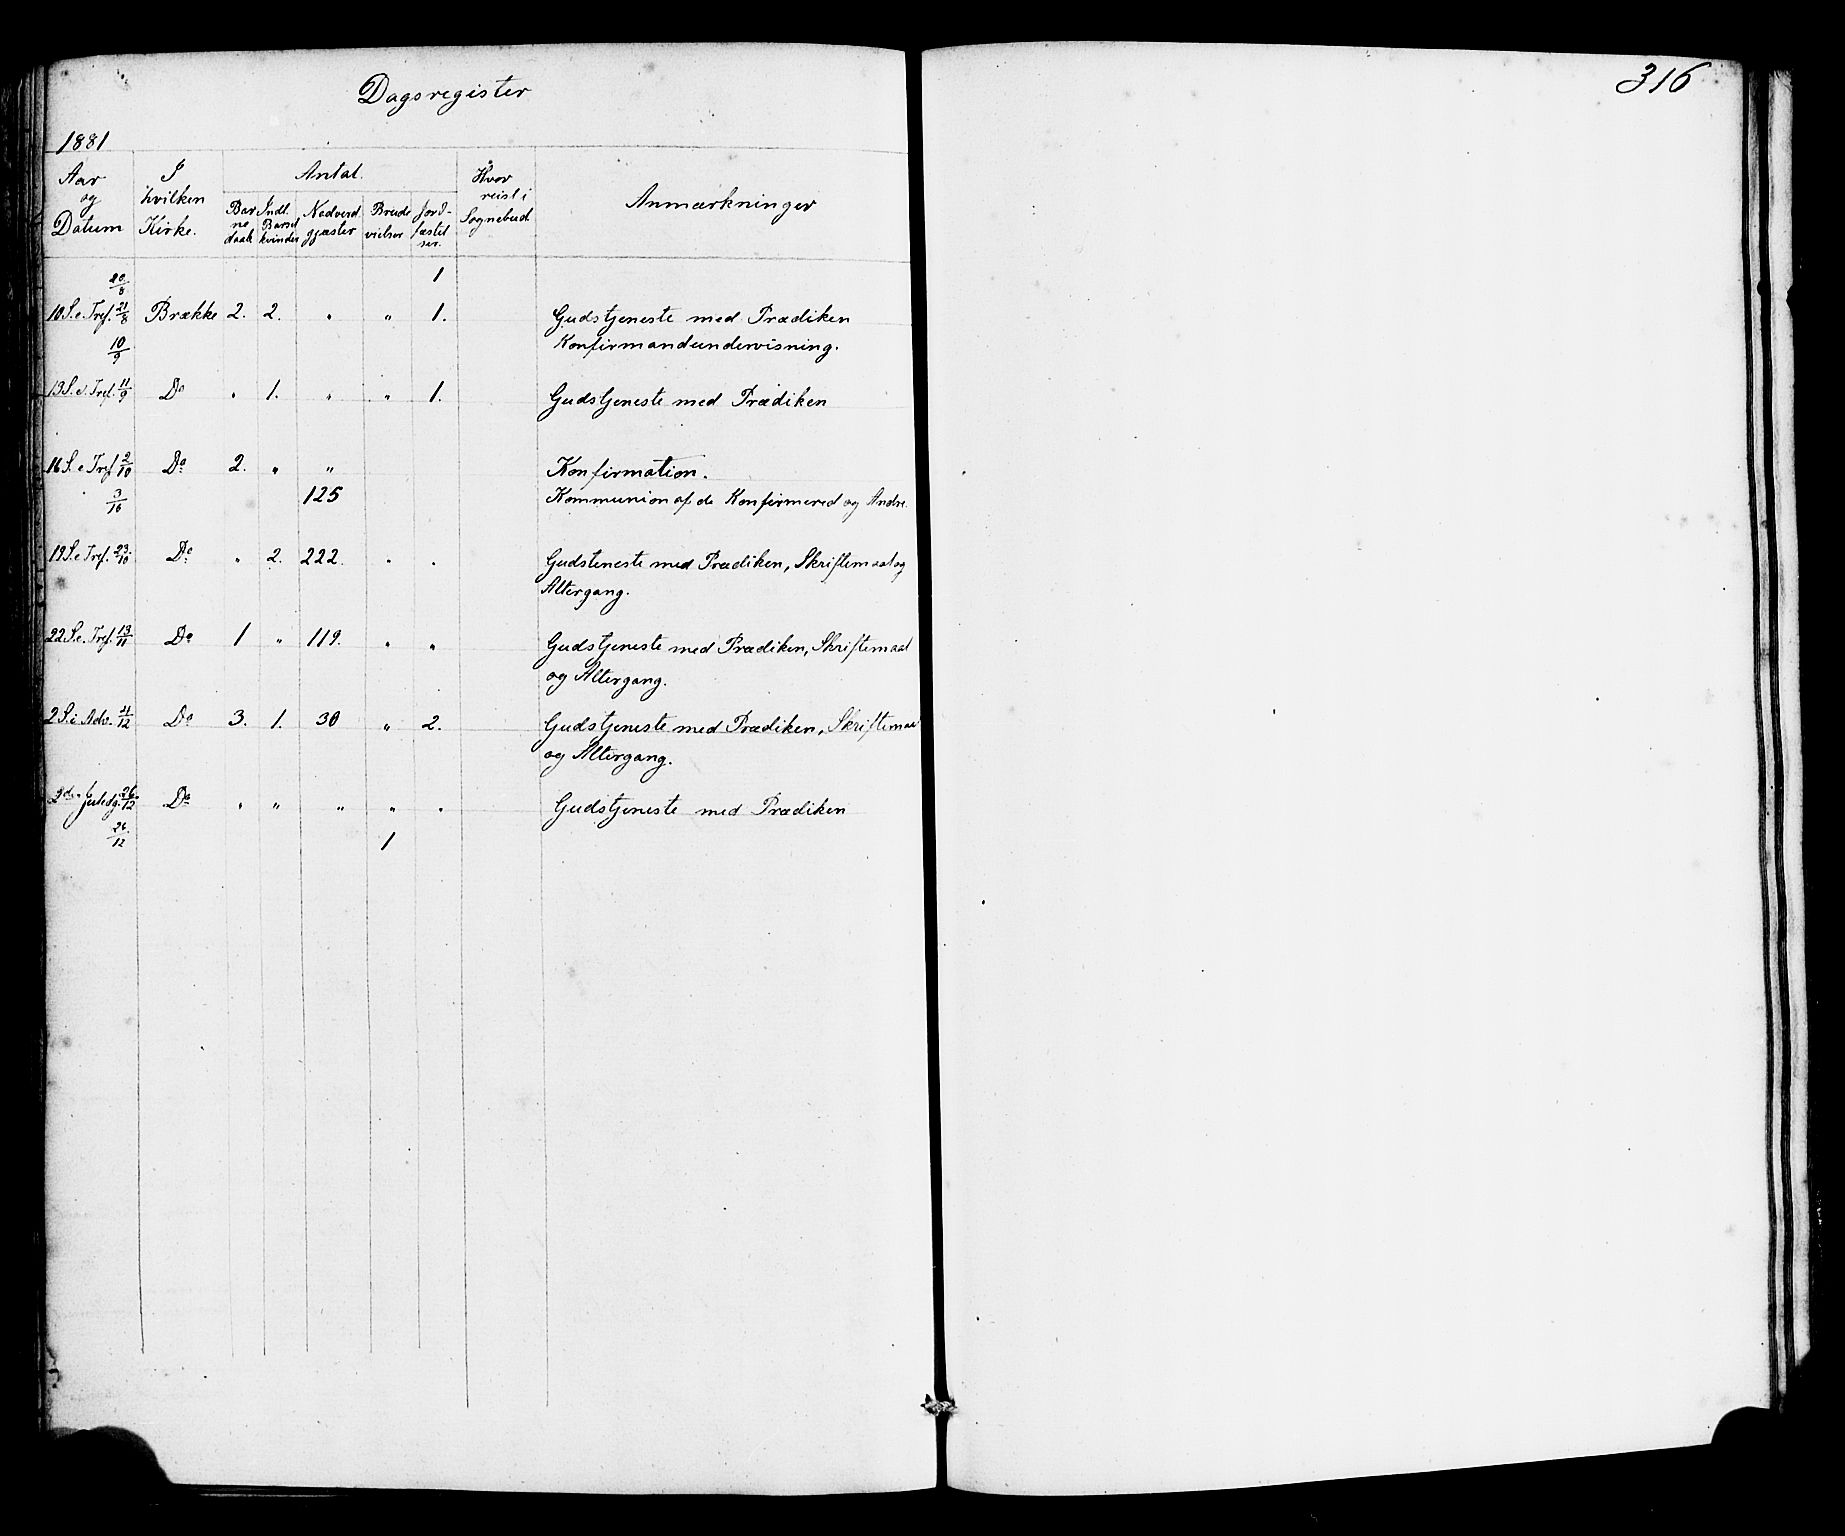 Dagsregister
316
1881
Aar og Datum
I hvilken Kirke.
Antal.
Bar ne daab
Indl. Barsel kvinder
Nadverd gjæster
Brude vielser
Jord- fæstel ser.
Hvor reist i Sognebud
Anmærkninger
20/8 1
10 S. e. Tref. 21/8 Brække 2. 2. " " 1. Gudstjeneste med Prædiken
10/9 Konfirmandundervisning.
13 S. e. Tref. 11/9 Do " 1. " " 1. Gudstjeneste med Prædiken
16 S. e Tref 2/10 Do 2. " " Konfirmation.
3/10 125 Kommunion af de Konfirmered og Andre.
19 S. e Tref. 23/10 Do " 2. 222. " " Gudsteneste med Prædiken, Skriftemaal og
Altergang.
22 S. e. Tref. 13/11 Do 1 " 119. " " Gudstjeneste med Prædiken, Skriftemaal
og Altergang.
2 S. i Adv. 4/12 Do 3. 1. 30 " 2. Gudstjeneste med Prædiken, Skriftemaal
og Altergang.
2den Juledg. 26/12 Do " " " " " Gudstjeneste med Prædiken
26/12 1